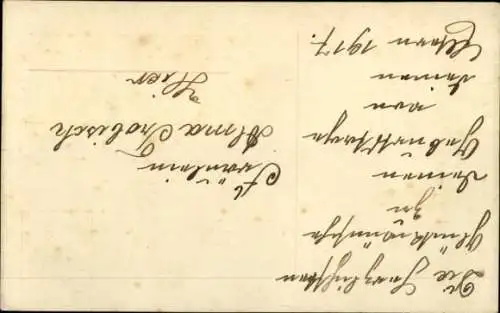 Die herzlichsten
Glückwünsche
zu
deinem
Geburtstage
von
deinen
Eltern 1917.
Fräulein
Alma Trobisch
Hier